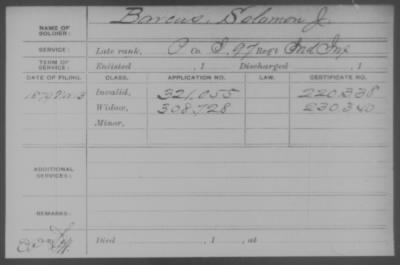 NAME OF SOLDIER: Barcus, Solomon J.
SERVICE: Late rank, P Co. I, 97 Reg't Ind Inf
TERM OF SERVICE: Enlisted , 1 Discharged , 1
DATE OF FILING. CLASS. APPLICATION NO. LAW. CERTIFICATE NO.
Invalid, 321,055 220,338
Widow, 308,728 230,340
Minor,
ADDITIONAL SERVICES:
REMARKS:
Died , 1 , at